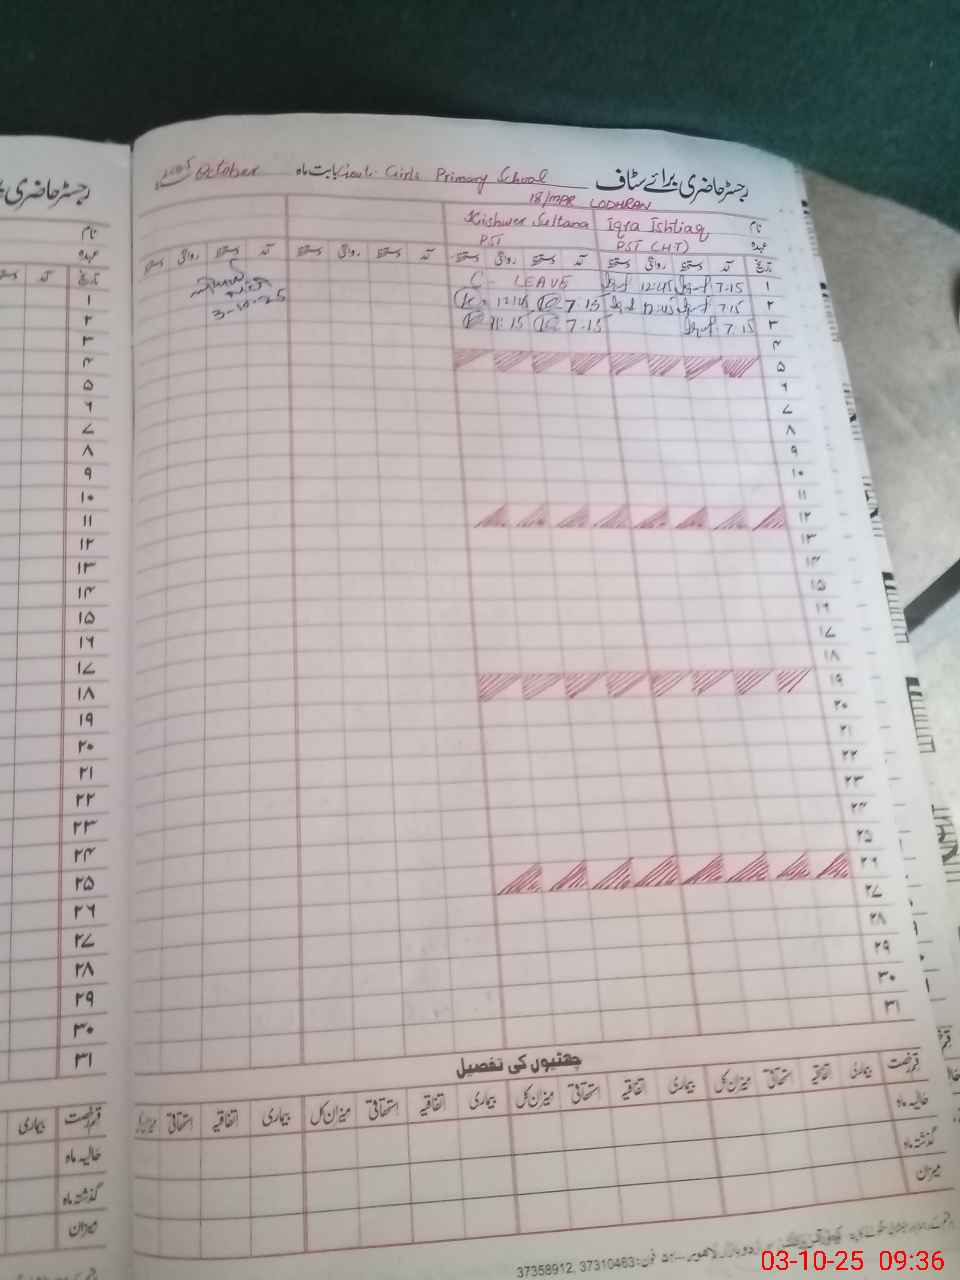 رجسٹر حاضری برائے سٹاف Govt. Girls Primary School بابت ماہ October
18/MPR LODHRAN
نام Iqra Ishtiaq Kishwer Sultana
عہدہ PST (HT) PST
تاریخ آمد دستخط روانگی دستخط آمد دستخط روانگی دستخط آمد دستخط روانگی دستخط آمد دستخط روانگی دستخط
۱ 7.15 12:45 C - LEAVE
۲ 7.15 12:45 7.15 12:45
۳ 7.15 7.15
3-10-25
۴
۵
۶
۷
۸
۹
۱۰
۱۱
۱۲
۱۳
۱۴
۱۵
۱۶
۱۷
۱۸
۱۹
۲۰
۲۱
۲۲
۲۳
۲۴
۲۵
۲۶
۲۷
۲۸
۲۹
۳۰
۳۱
چھٹیوں کی تفصیل
قسم رخصت بیماری اتفاقیہ استحقاقی میزان کل بیماری اتفاقیہ استحقاقی میزان کل بیماری اتفاقیہ استحقاقی میزان کل بیماری اتفاقیہ استحقاقی
حالیہ ماہ
گذشتہ ماہ
میزان
فون: 37310463, 37358912
رجسٹر حاضری
نام
عہدہ
تاریخ آمد
۱
۲
۳
۴
۵
۶
۷
۸
۹
۱۰
۱۱
۱۲
۱۳
۱۴
۱۵
۱۶
۱۷
۱۸
۱۹
۲۰
۲۱
۲۲
۲۳
۲۴
۲۵
۲۶
۲۷
۲۸
۲۹
۳۰
۳۱
قسم رخصت بیماری
حالیہ ماہ
گذشتہ ماہ
میزان
03-10-25 09:36